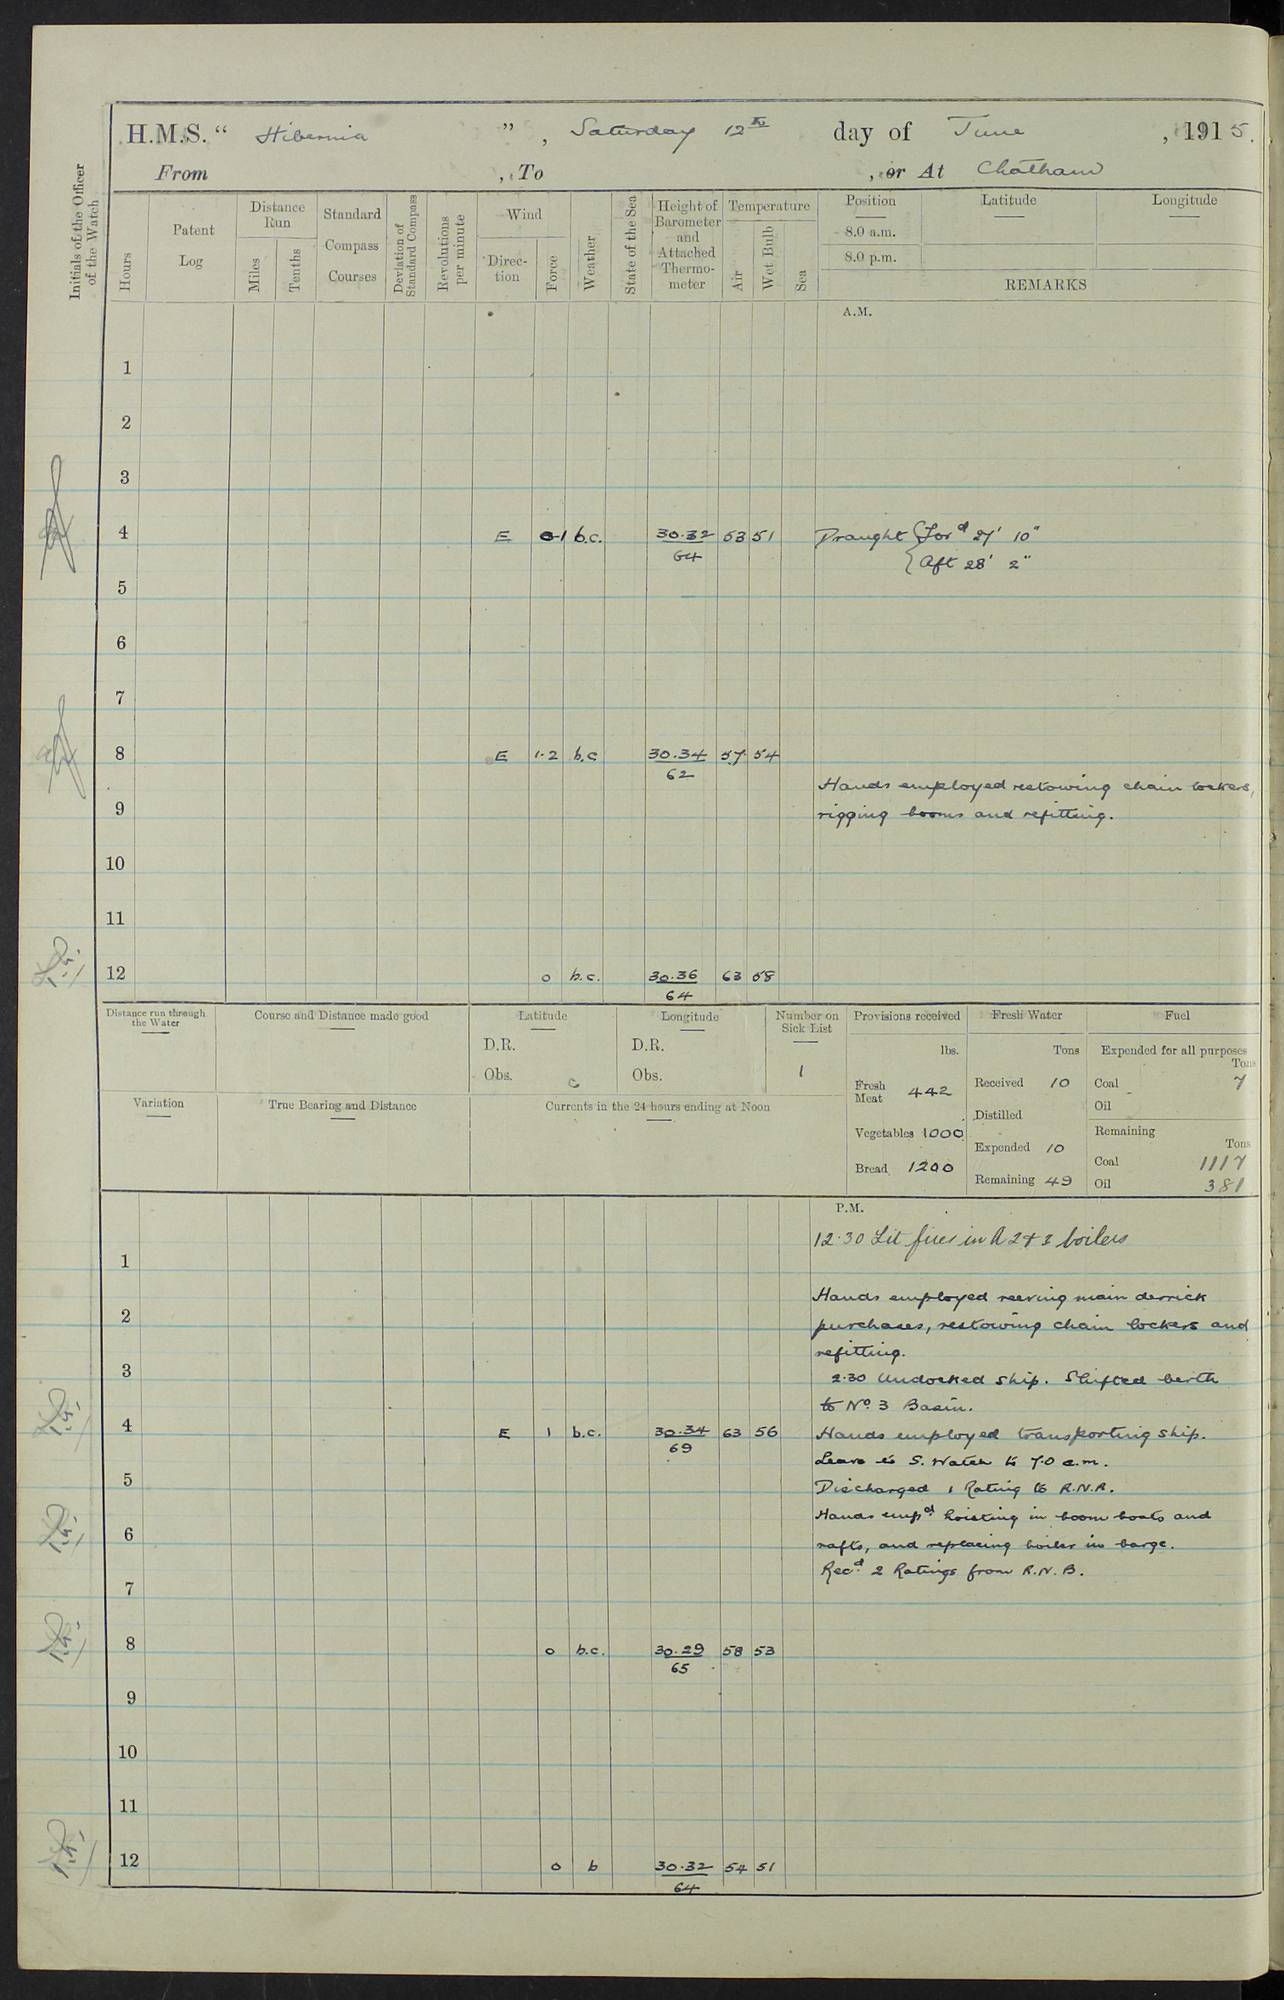 H.M.S. "Hibernia", Saturday 12th day of June, 1915.
From , To , or At Chatham
Initials of the Officer of the Watch
Hours
Patent Log
Distance Run
Miles
Tenths
Standard Compass Courses
Deviation of Standard Compass
Revolutions per minute
Wind
Direction
Force
Weather
State of the Sea
Height of Barometer and Attached Thermometer
Temperature
Air
Wet Bulb
Sea
Position Latitude Longitude
8.0 a.m.
8.0 p.m.
REMARKS
A.M.
1
2
3
4 E 0-1 b.c. 30.32 53 51 Draught {Ford 27' 10"
64 {Aft 28' 2"
5
6
7
8 E 1.2 b.c 30.34 57 54
62
Hands employed restowing chain lockers,
9 rigging booms and refitting.
10
11
12 0 b.c. 30.36 63 58
64
Distance run through the Water
Course and Distance made good
Latitude
D.R.
Obs.
Longitude
D.R.
Obs.
Number on Sick List
1
Provisions received
lbs.
Fresh Meat 442
Vegetables 1000
Bread 1200
Fresh Water
Tons
Received 10
Distilled
Expended 10
Remaining 49
Fuel
Expended for all purposes
Tons
Coal 7
Oil
Remaining
Tons
Coal 1117
Oil 381
Variation
True Bearing and Distance
Currents in the 24 hours ending at Noon
P.M.
12.30 Lit fires in A 2 & 3 boilers
1
Hands employed reeving main derrick
2 purchases, restowing chain lockers and
refitting.
3 2.30 Undocked ship. Shifted berth
to No. 3 Basin.
4 E 1 b.c. 30.34 63 56 Hands employed transporting ship.
69 Leave to S. Watch to 7.0 a.m.
5 Discharged 1 Rating to R.N.R.
Hands empd. hoisting in boom boats and
6 rafts, and replacing boiler in barge.
Recd. 2 Ratings from R.N.B.
7
8 0 b.c. 30.29 58 53
65
9
10
11
12 0 b 30.32 54 51
64